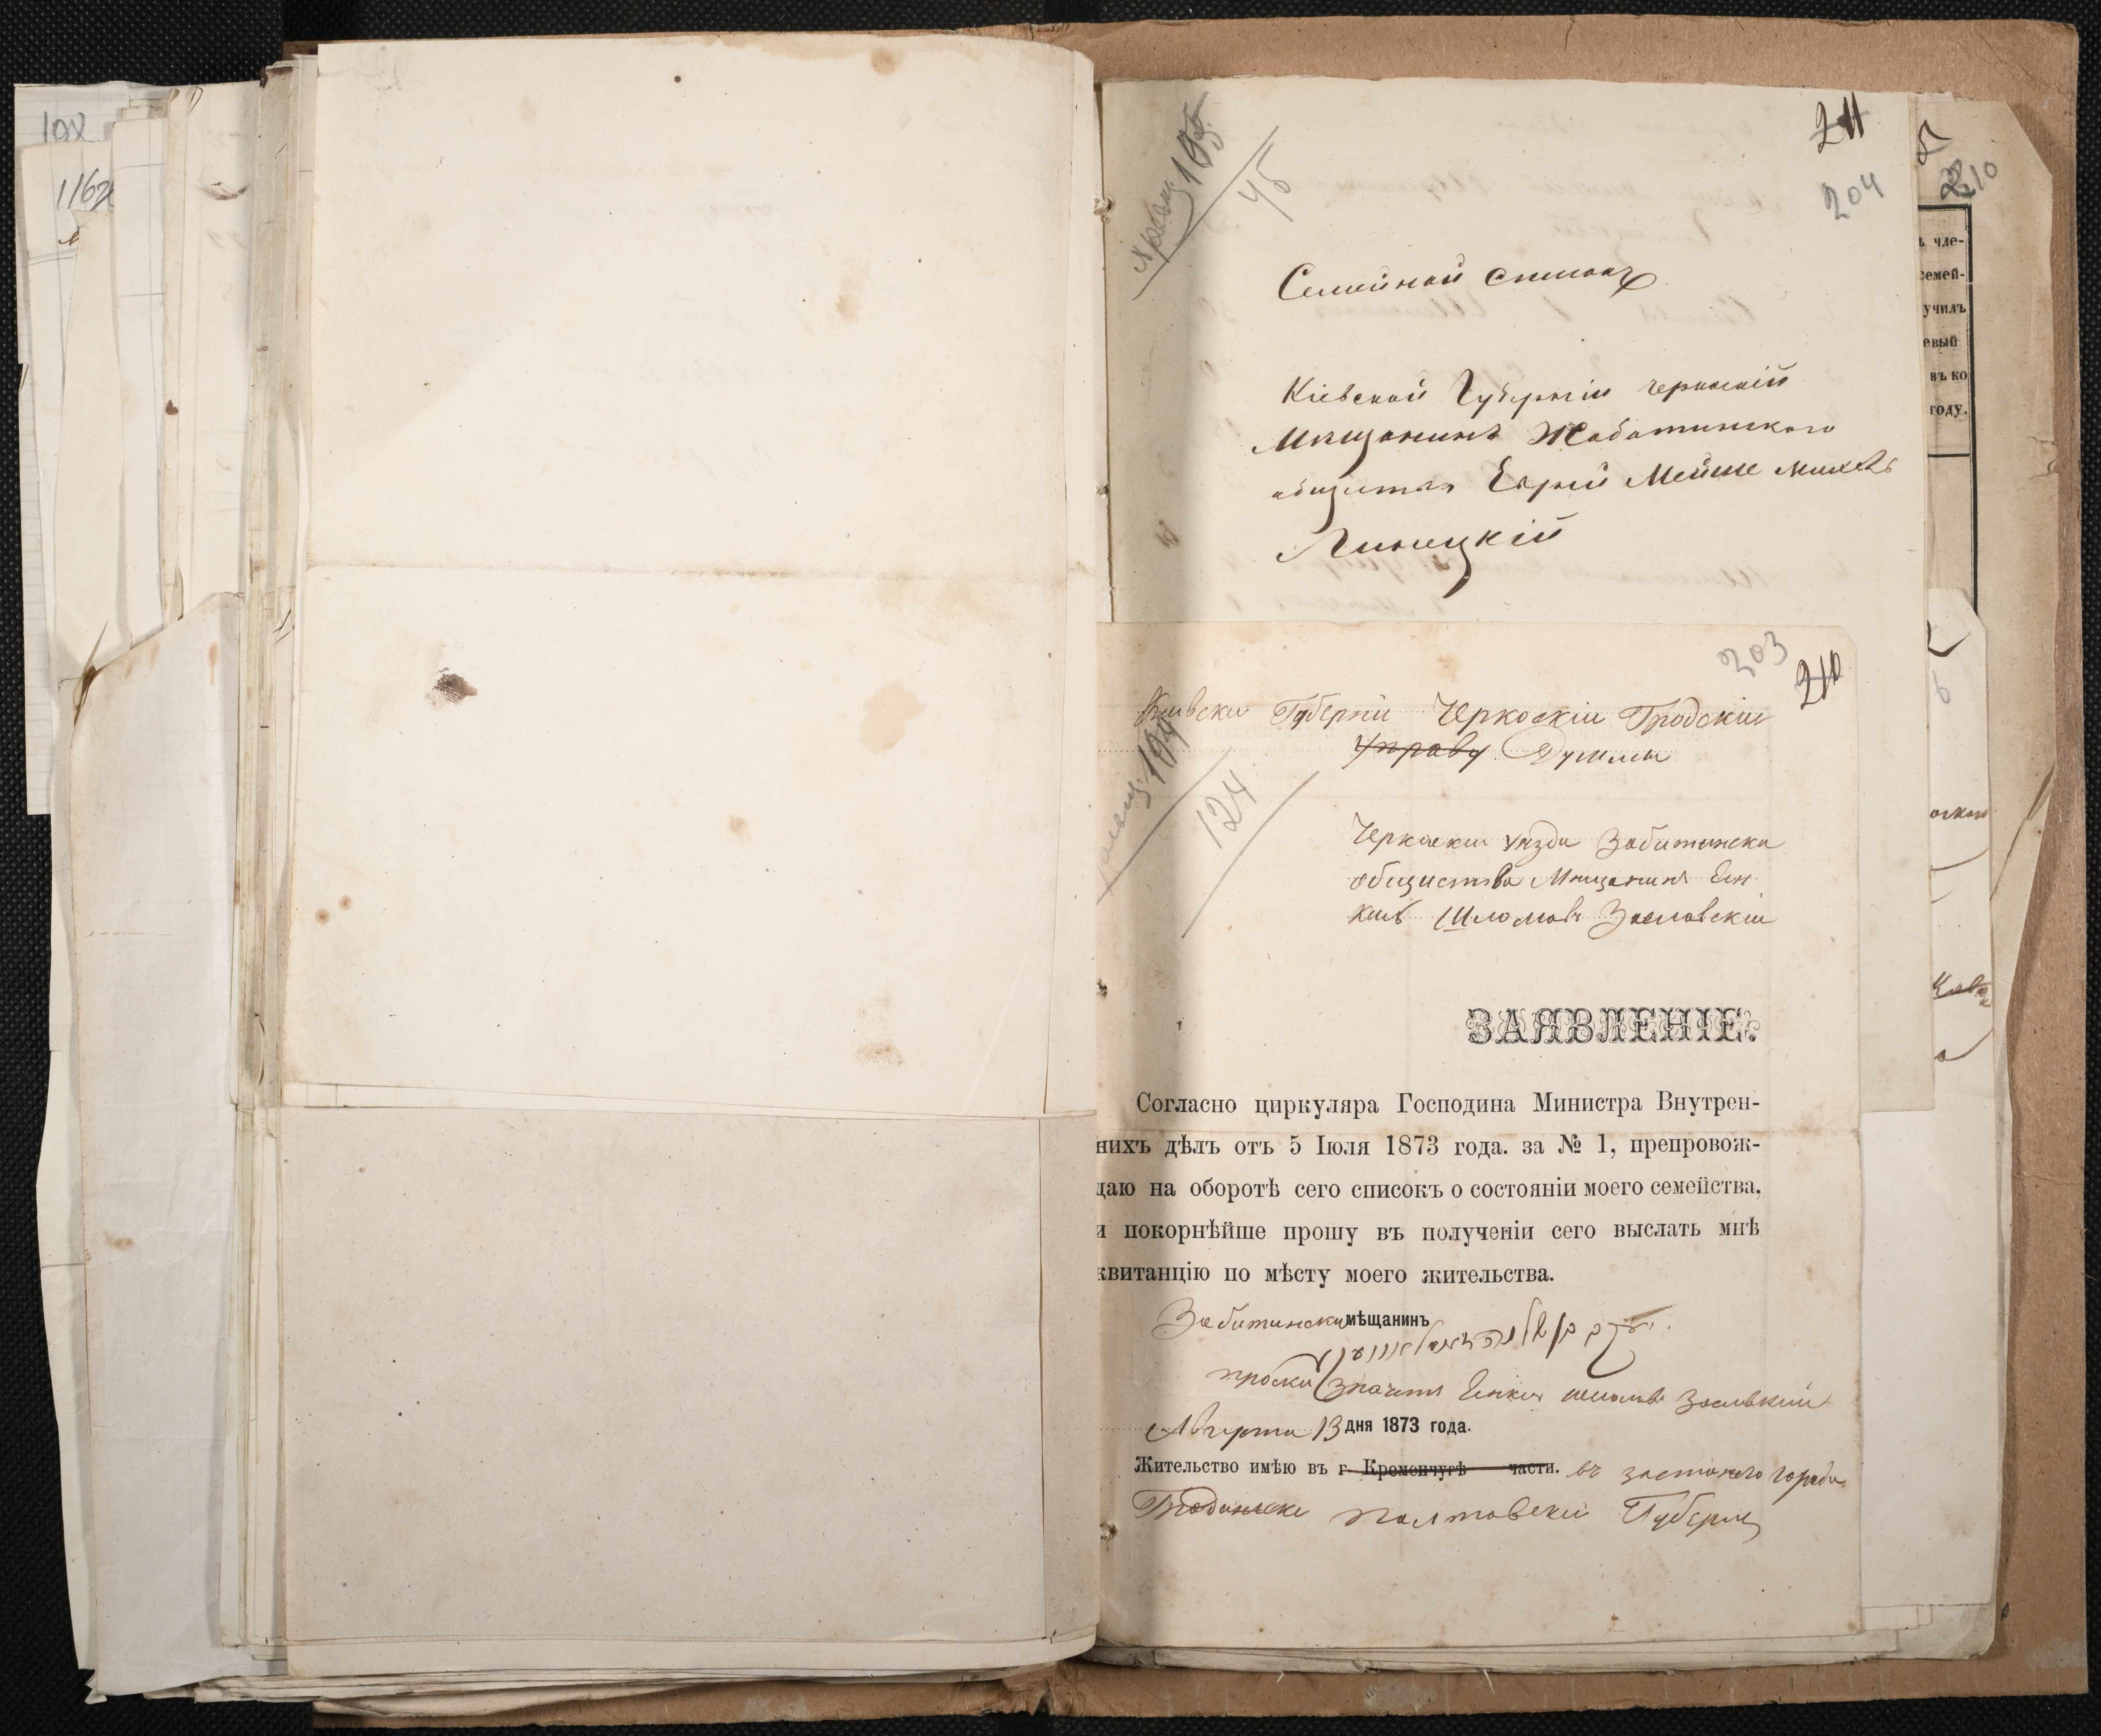 108
1162
211
204
45
Семейной списокъ
Кіевской Губерніи черкаскій
Мещанинъ Жаботинского
общества Еврей Мейше Михель
Линецкій
210
ъ чле-
семей-
училъ
евый
въ ко
году.
203
210
Киевски Губерніи Черкаскіи Гродскіи
Управу Думы
124
Черкаски уезда Забитински
общиства Мещанинъ Ен
кив Шломовъ Заславскіи
ЗАЯВЛЕНІЕ.
Согласно циркуляра Господина Министра Внутрен-
нихъ дѣлъ отъ 5 Іюля 1873 года. за № 1, препровож-
даю на оборотѣ сего списокъ о состояніи моего семейства,
и покорнѣйше прошу въ полученіи сего выслать мнѣ
квитанцію по мѣсту моего жительства.
Забитински мѣщанинъ
Августа 13 дня 1873 года.
Жительство имѣю въ г. Кременчугѣ части. въ города
Полтовски Губерни